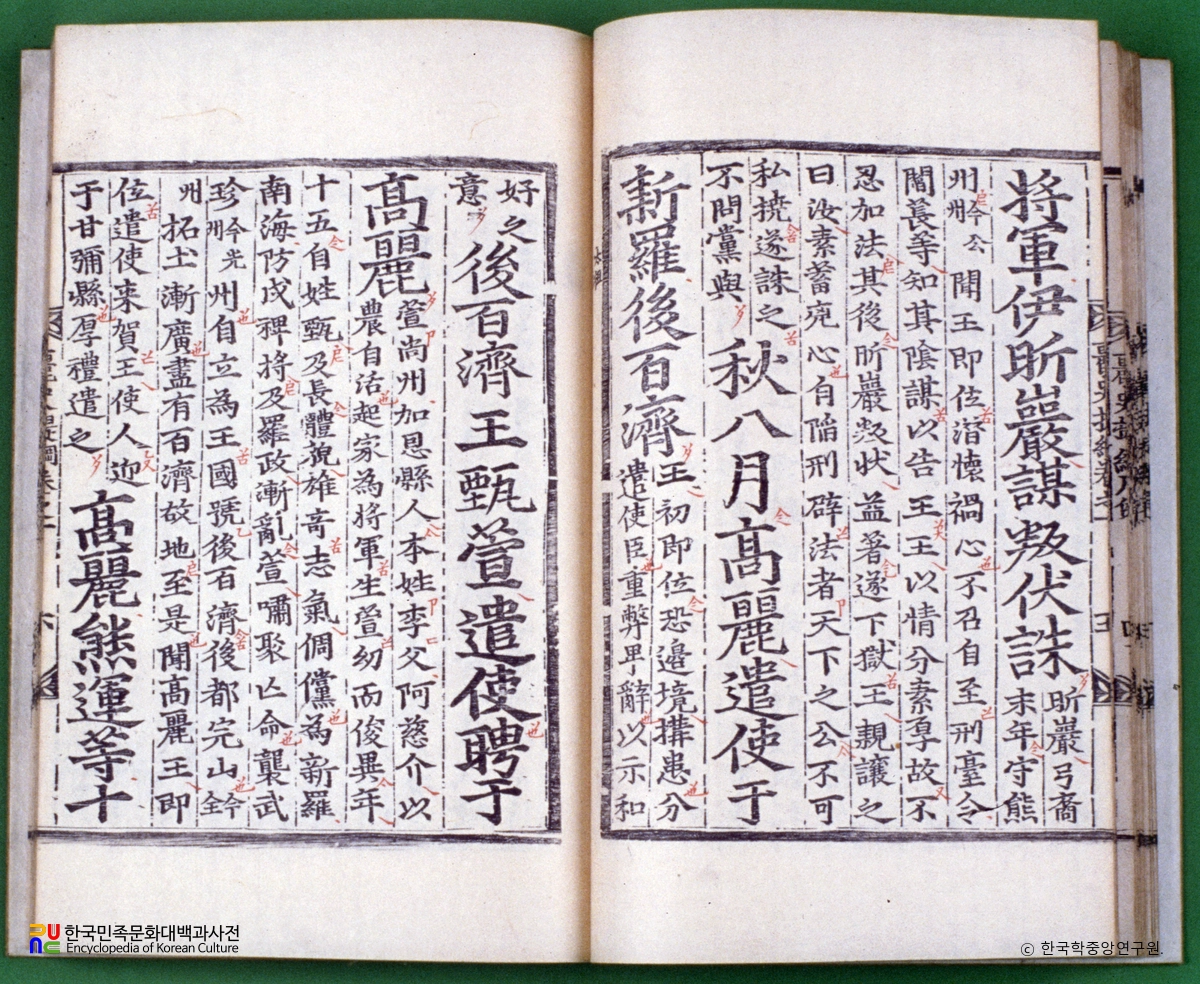 將軍伊昕巖謀叛伏誅
昕巖弓裔
末年守熊
州今公州聞王即位潛懷禍心不召自至刑臺令
閻萇等知其陰謀以告王王以情分素厚故不
忍加法其後昕巖叛狀益著遂下獄王親讓之
曰汝素蓄兇心自陷刑辟法者天下之公不可
私撓遂誅之
不問黨與
秋八月高麗遣使于
新羅後百濟
王初即位恐邊境搆患分
遣使臣重幣卑辭以示和
好之
意
後百濟王甄萱遣使聘于
高麗
萱尚州加恩縣人本姓李父阿慈介以
農自活起家為將軍生萱幼而俊異年
十五自姓甄及長體貌雄奇志氣倜儻為新羅
南海防戍裨將及羅政漸亂萱嘯聚亡命襲武
珍州今光州自立為王國號後百濟後都完山今全
州拓土漸廣盡有百濟故地至是聞高麗王即
位遣使来賀王使人迎
于甘彌縣厚禮遣之
高麗熊運等十
한국민족문화대백과사전
Encyclopedia of Korean Culture
ⓒ 한국학중앙연구원.